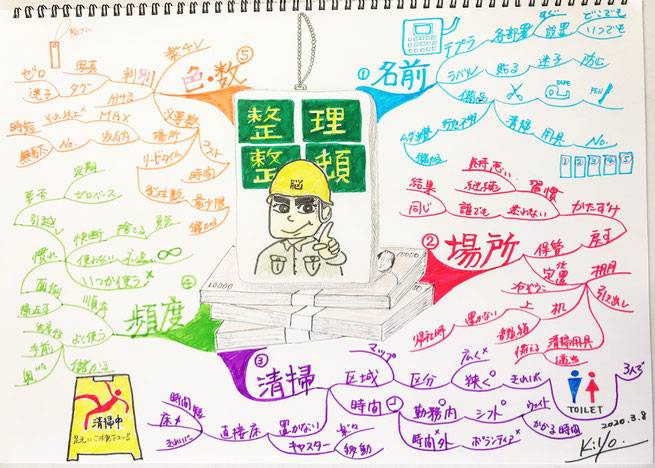 整理
整頓
脳
10000
10000
① 名前
テプラ
各部署
すぐ
設置
どこでも
いつでも
ラベル
貼る
迷子
防止
備品
TAPE
PEN
清掃
用具
No.
1 2 3 4 5
② 場所
かたずけ
習慣
継続
迷わない
誰でも
結果
同じ
戻す
保管
定位置
棚
引き出し
机
上
置かない
帰社時
清掃用具
備える
③ 清掃
マップ
区域
区分
広く×
狭く○
きれいさ
TOILET
3人で
時間
勤務内
シフト
かかる時間
時間外
ボランティア×
置かない
直接床
床×
キャスター
楽に
移動
清掃中
④ 頻度
順序
よく使う
手前
儲かる
いつか使う×
使わない
快断
捨てる
勇気
慣れ
面倒
引越し
ゼロベース
定期
要否
∞
⑤ 色・数
判別
写真
ゼロ
迷子
タグ
分ける
必要数
MAX
場所
以内
No.
無駄
時短
コスト
リードタイム
時間
発注数
最少限
儲かる
2020.3.8
Kiyo.